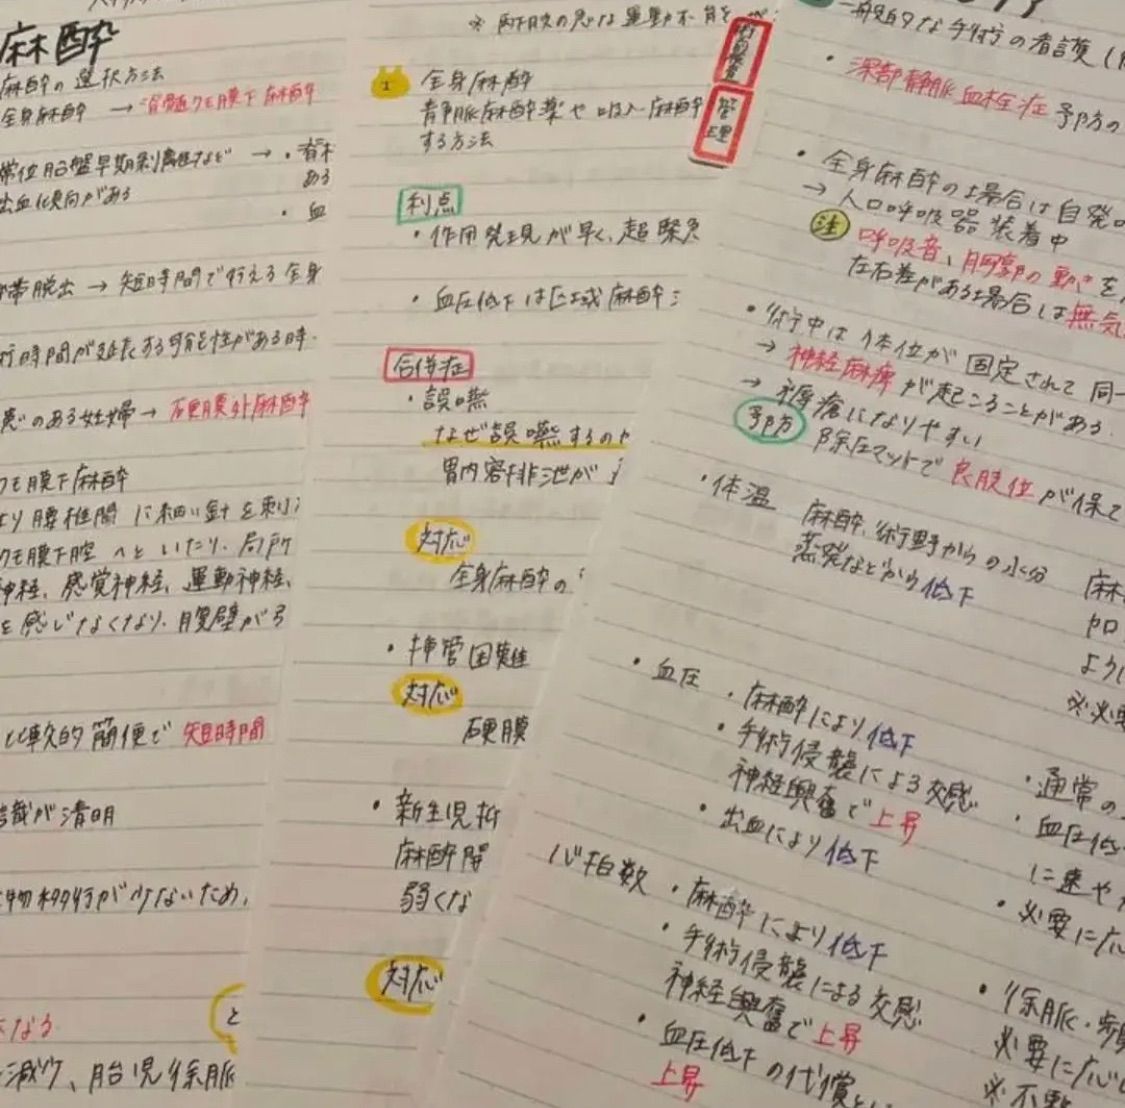 麻酔
麻酔の選択方法
全身麻酔 → 脊髄クモ膜下麻酔
常位胎盤早期剥離など → ・脊
ある
出血傾向がある
・血
帯脱出 → 短時間で行える全身
行時間が延長する可能性がある時
患いのある妊婦 → 硬膜外麻酔
クモ膜下麻酔
より腰椎間に細い針を刺
クモ膜下腔へといたり、局所
神経、感覚神経、運動神経、
を感じなくなり、腹壁が弓
比較的簡便で短時間
識が清明
物移行が少ないため、
と
なる
減少、胎児徐脈
1 全身麻酔
静脈麻酔薬や吸入麻酔
する方法
利点
・作用発現が早く、超緊急
・血圧低下は区域麻酔
合併症
・誤嚥
なぜ誤嚥するのか
胃内容排泄が
対応
全身麻酔の
・挿管困難
対応
硬膜
・新生児抑
麻酔開
弱くな
対応
管理
一般的な手術の看護
・深部静脈血栓症予防の
・全身麻酔の場合は自発
→ 人口呼吸器装着中
注 呼吸音、胸郭の動きを
左右差がある場合は無気
・術中は体位が固定されて同一
→ 神経麻痺が起こることがある
→ 褥瘡になりやすい
予防 除圧マットで良肢位が保て
・体温 麻酔、術野からの水分
蒸発などから低下
麻
加
よう
※必要
・血圧 ・麻酔により低下
・手術侵襲による交感
神経興奮で上昇
・出血により低下
・通常の
・血圧低
に速や
・必要に応
心拍数 ・麻酔により低下
・手術侵襲による交感
神経興奮で上昇
・血圧低下の代償と
上昇
・徐脈・頻
必要に応
※不整